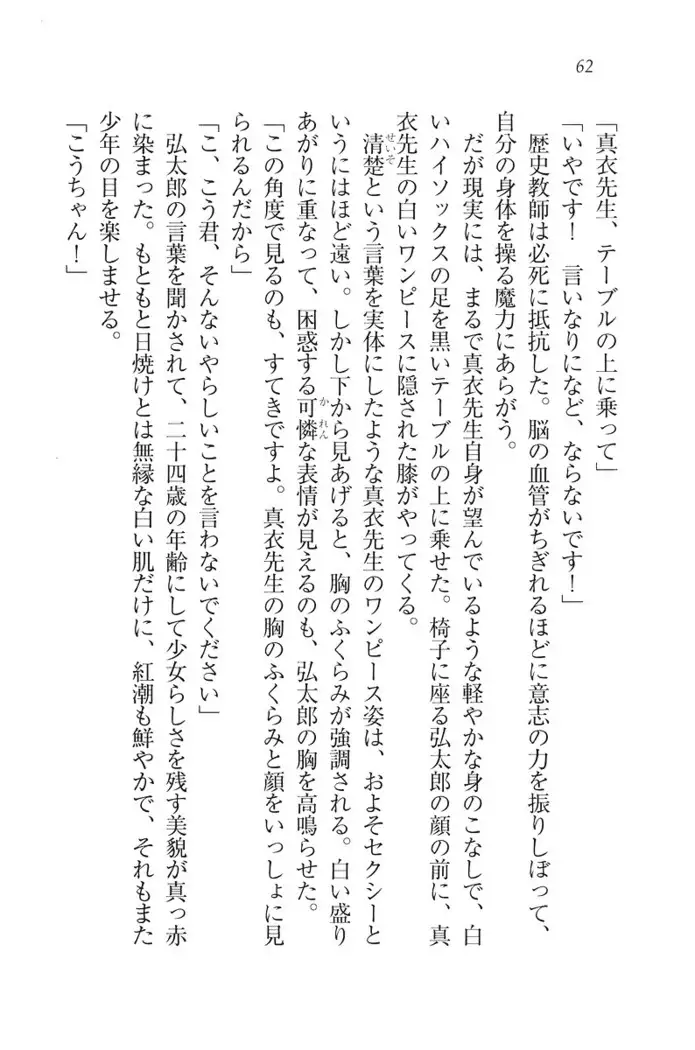 62
「真衣先生、テーブルの上に乗って」
「いやです！　言いなりになど、ならないです！」
　歴史教師は必死に抵抗した。脳の血管がちぎれるほどに意志の力を振りしぼって、
自分の身体を操る魔力にあらがう。
　だが現実には、まるで真衣先生自身が望んでいるような軽やかな身のこなしで、白
いハイソックスの足を黒いテーブルの上に乗せた。椅子に座る弘太郎の顔の前に、真
衣先生の白いワンピースに隠された膝がやってくる。
　清楚（せいそ）という言葉を実体にしたような真衣先生のワンピース姿は、およそセクシーと
いうにはほど遠い。しかし下から見あげると、胸のふくらみが強調される。白い盛り
あがりに重なって、困惑する可憐（かれん）な表情が見えるのも、弘太郎の胸を高鳴らせた。
「この角度で見るのも、すてきですよ。真衣先生の胸のふくらみと顔をいっしょに見
られるんだから」
「こ、こう君、そんないやらしいことを言わないでください」
　弘太郎の言葉を聞かされて、二十四歳の年齢にして少女らしさを残す美貌が真っ赤
に染まった。もともと日焼けとは無縁な白い肌だけに、紅潮も鮮やかで、それもまた
少年の目を楽しませる。
「こうちゃん！」